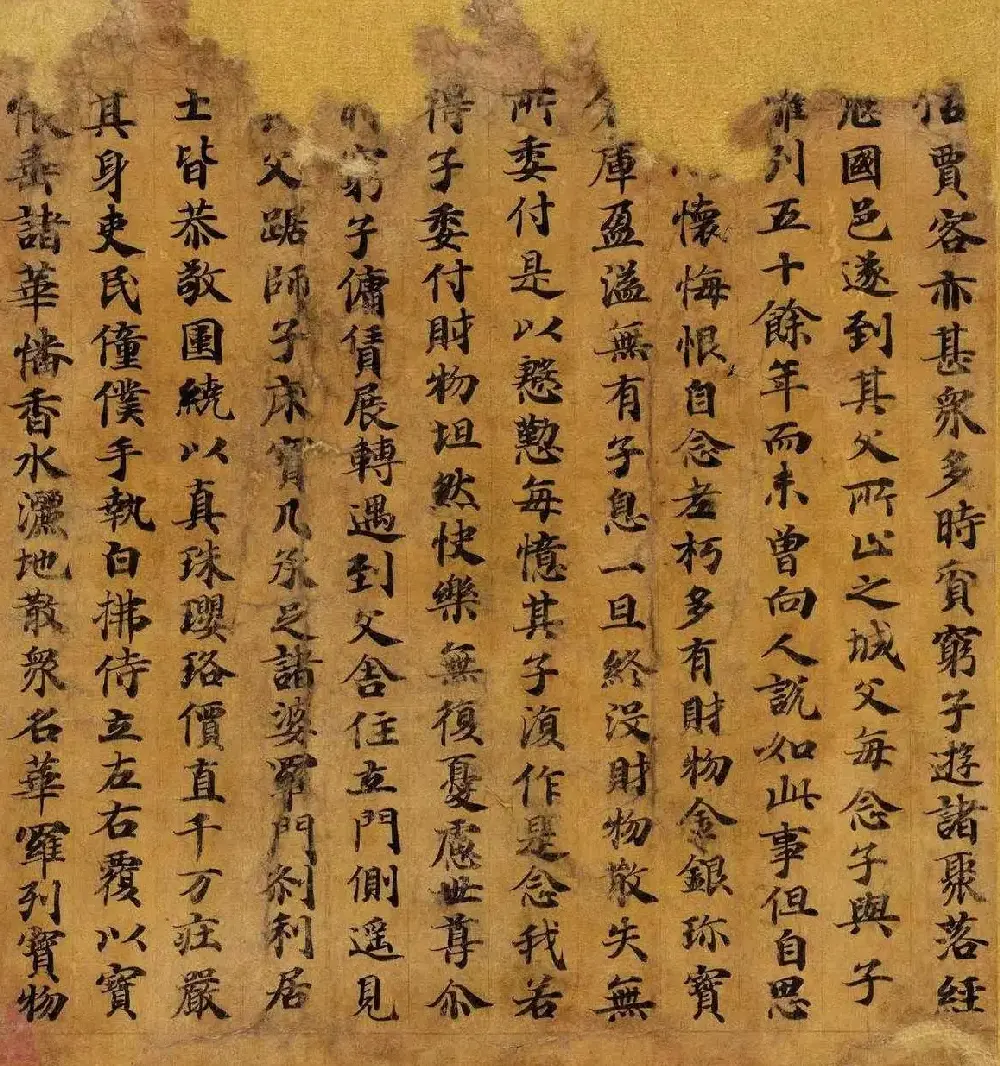 估賈客亦甚衆多時貧窮子遊諸聚落經
歷國邑遂到其父所止之城父每念子與子
離別五十餘年而未曾向人說如此事但自思
懷悔恨自念老朽多有財物金銀珎寶
庫盈溢無有子息一旦終没財物散失無
所委付是以慇懃每憶其子復作是念我若
得子委付財物坦然快樂無復憂慮世尊尒
窮子傭賃展轉遇到父舍住立門側遥見
父踞師子床寶几承足諸婆羅門剎利居
士皆恭敬圍繞以真珠瓔珞價直千万莊嚴
其身吏民僮僕手執白拂侍立左右覆以寶
帳垂諸華幡香水灑地散衆名華羅列寶物